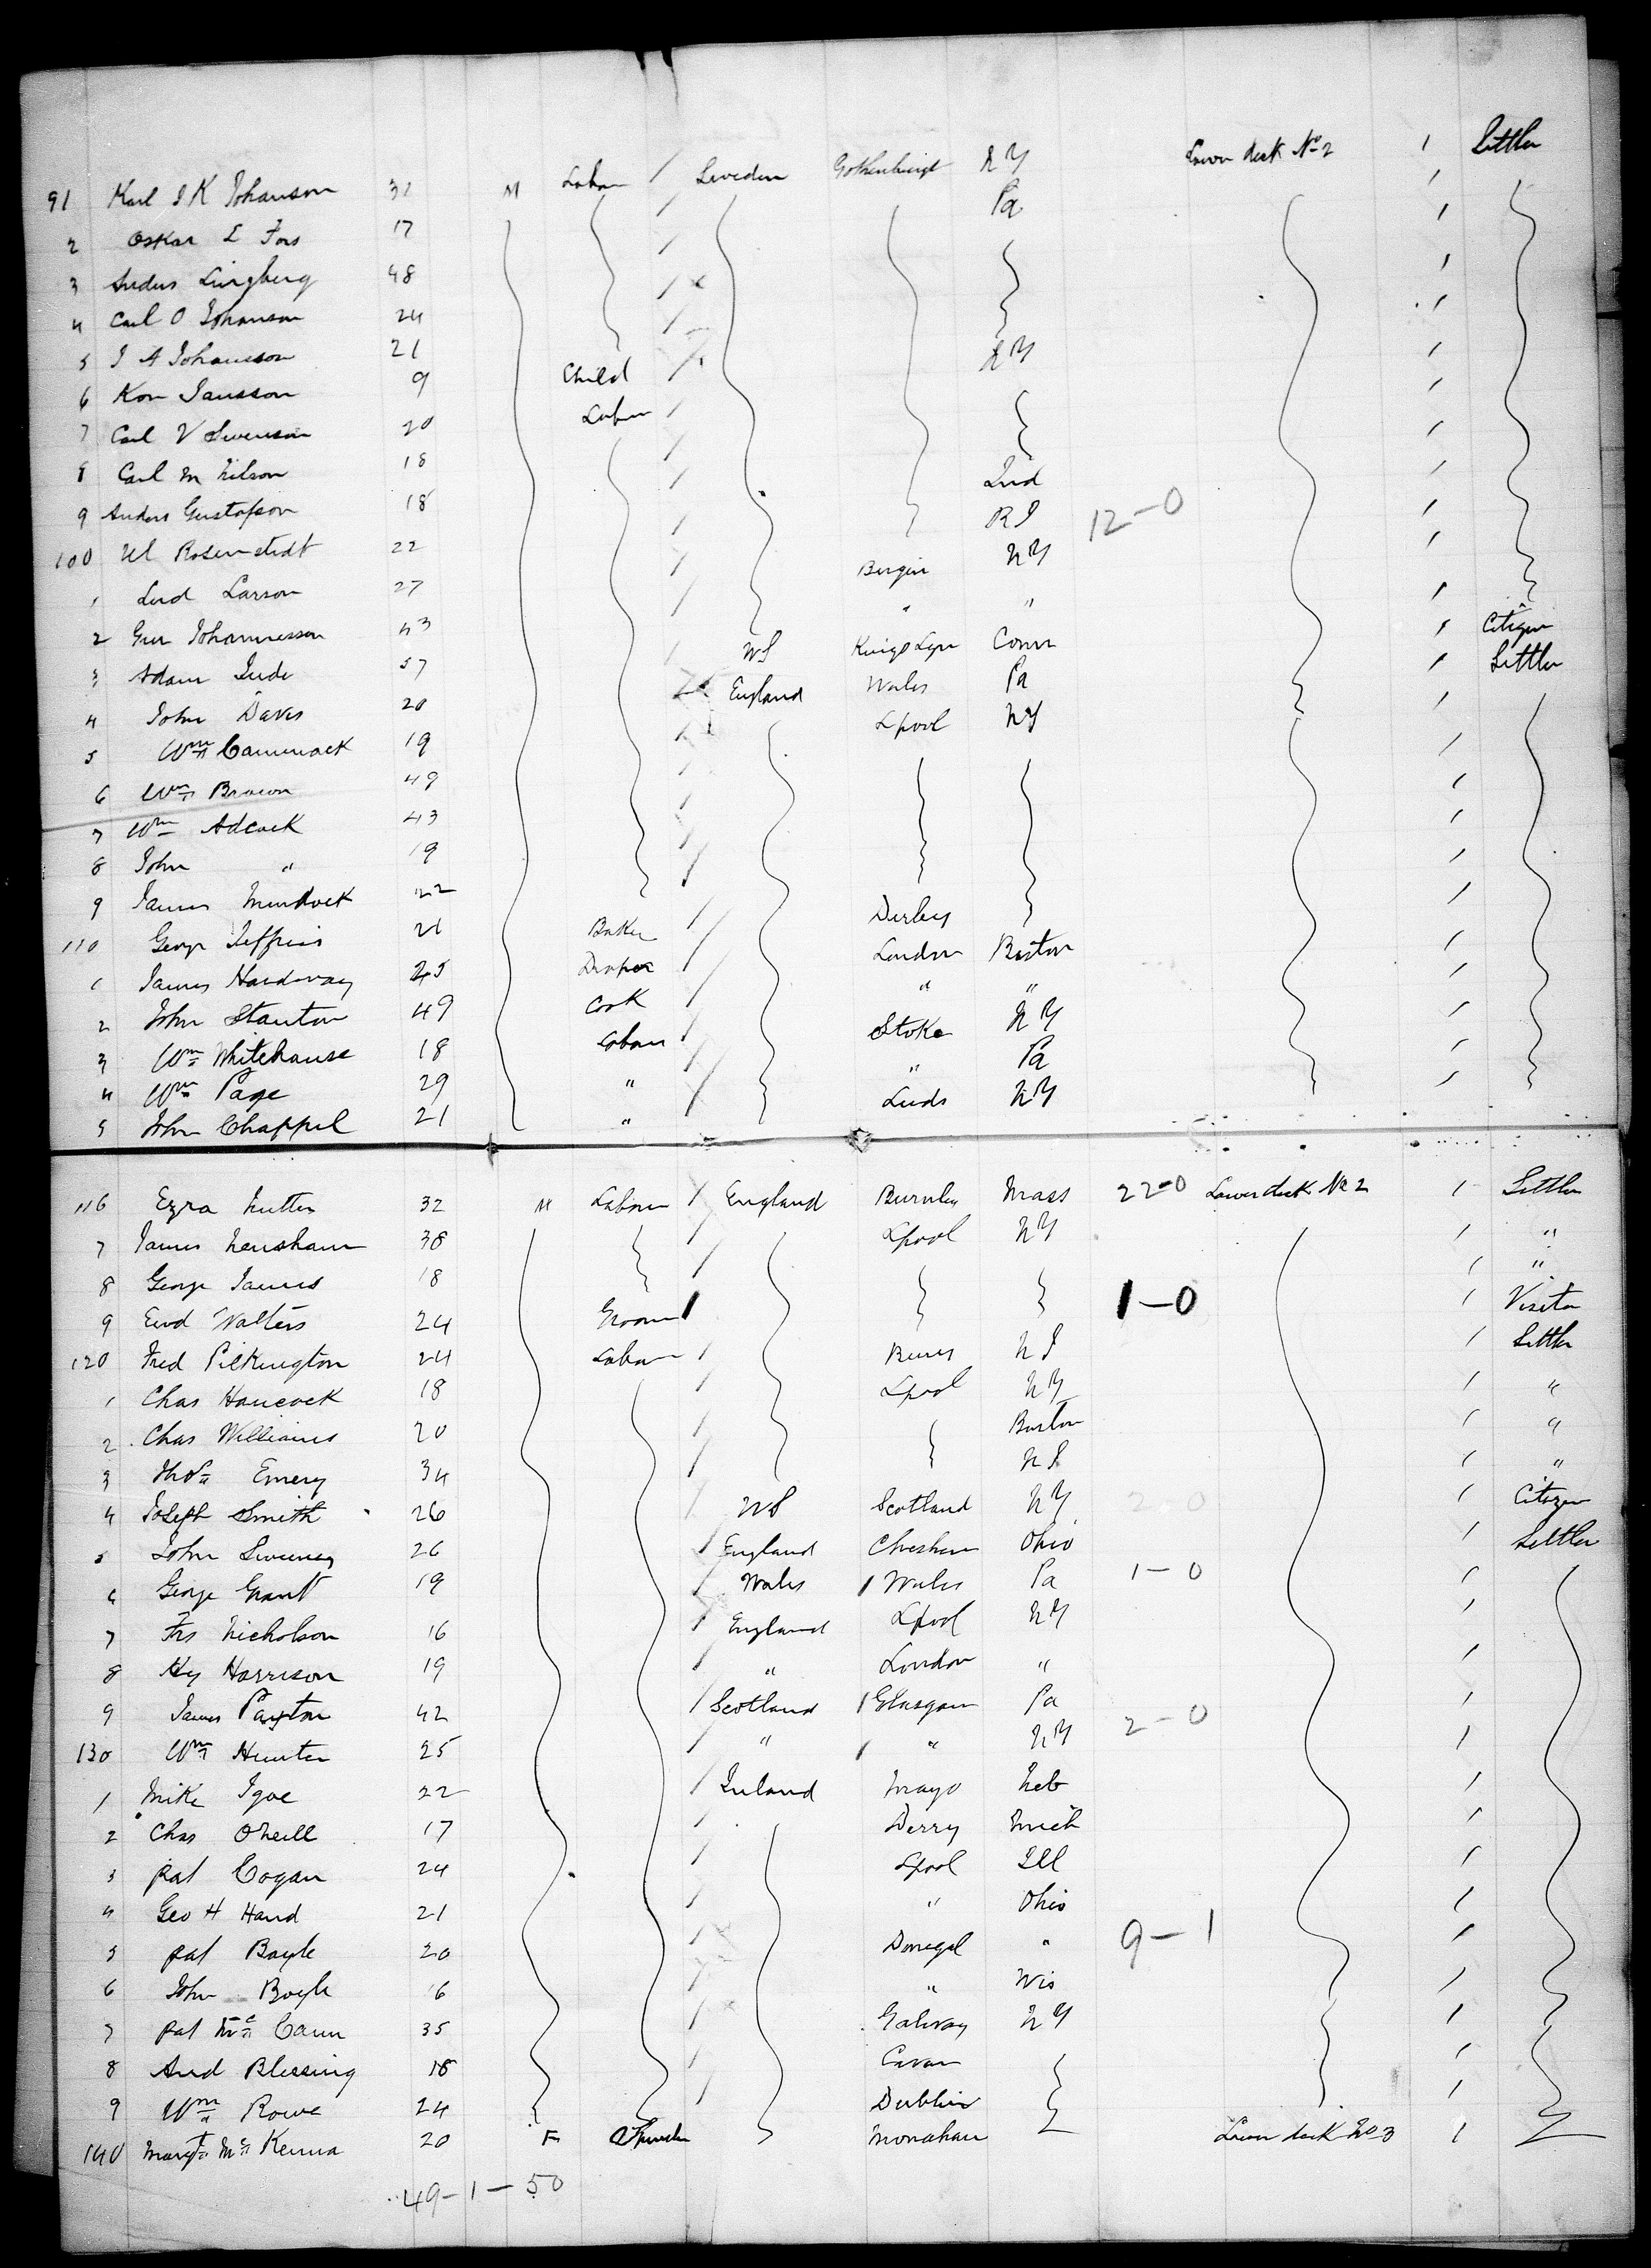 91 Karl I K Johanson 32 M Labour / Sweden Gothenburg N Y Lower deck No 2 1 Settler
2 Oskar E Fors 17 / Pa /
3 Anders Lingberg 48 / /
4 Carl O Johanson 24 / x /
5 I A Johanson 21 / /
6 Kon Jansson 9 Child / N Y /
7 Carl V Swenson 20 Labour / /
8 Carl M Nilson 18 / /
9 Anders Gustafson 18 / Ind /
100 Rosenstedt 22 / R I 12-0 /
1 Larson 27 / Bergin N Y /
2 Johannesson 43 / " " /
3 Adam 57 / US Kings Lyn Conn / Citizen
4 John Davis 20 England Wales Pa / Settler
5 Wm Cammack 19 / Lpool N Y /
6 Wm Brown 49 / /
7 Wm Adcock 43 / /
8 John " 19 / /
9 James Murdock 22 / /
110 George Jeffries 21 Baker / Derby /
1 James Hardway 25 Draper / London Boston /
2 John Stanton 49 Cook / " " /
3 Wm Whitehouse 18 Labour / Stoke N Y /
4 Wm Page 29 " / " Pa /
5 John Chappel 21 " / Leeds N Y /
116 Ezra Nutter 32 M Labour / England Burnley Mass 22-0 Lower deck No 2 1 Settler
7 James Henshaw 38 / Lpool N Y / "
8 George James 18 / / "
9 Walters 24 Groom / 1-0 / Visitor
120 Fred Pilkington 24 Labour / N J / Settler
1 Chas Hancock 18 / Lpool N Y / "
2 Chas Williams 20 / Boston / "
3 Thos Emery 34 / / "
4 Joseph Smith 26 / US Scotland N Y 2-0 / Citizen
5 John Sweeney 26 / England Cheshire Ohio / Settler
6 George Grant 19 / Wales / Wales Pa 1-0 /
7 Frs Nicholson 16 / England Lpool N Y /
8 Hy Harrison 19 / " London " /
9 James Payton 42 / Scotland / Glasgow Pa /
130 Wm Hunter 25 / " / " N Y 2-0 /
1 Mike Igoe 22 / Ireland Mayo Neb /
2 Chas O'Neill 17 / Derry Mich /
3 Pat Cogan 24 / Lpool Ill /
4 Geo H Hand 21 / " Ohio /
5 Pat Boyle 20 / Donegal " 9-1 /
6 John Boyle 16 / " Wis /
7 Pat Mc Cann 35 / Galway N Y /
8 And Blessing 18 / Cavan /
9 Wm Rowe 24 / Dublin /
140 Margt Mc Kenna 20 F Spinster Monahan Lower deck No 3 1
49-1-50